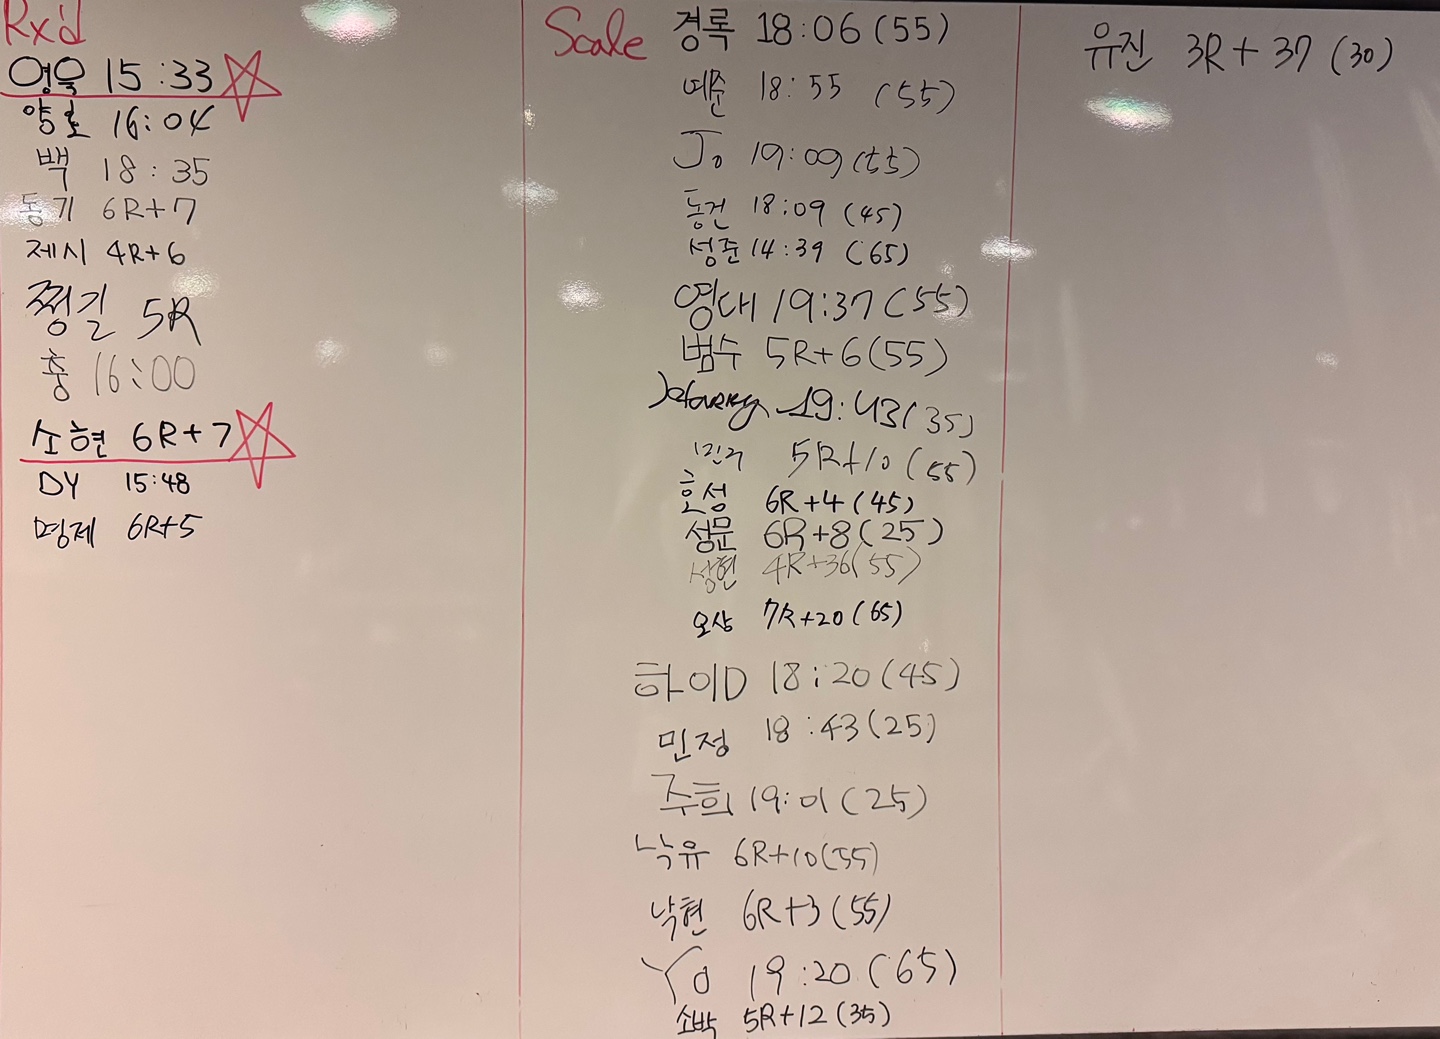 Rx'd
영욱 15:33
양호 16:04
백 18:35
동기 6R+7
제시 4R+6
찡길 5R
충 16:00
소현 6R+7
DY 15:48
명제 6R+5
Scale
경록 18:06 (55)
예준 18:55 (55)
Jo 19:09 (55)
동건 18:09 (45)
성준 14:39 (65)
영대 19:37 (55)
범수 5R+6 (55)
Harry 19:43 (35)
5R+10 (55)
효성 6R+4 (45)
성문 6R+8 (25)
성현 4R+36 (55)
오상 7R+20 (65)
하이D 18:20 (45)
민정 18:43 (25)
주희 19:01 (25)
낙유 6R+10 (55)
낙현 6R+3 (55)
Yo 19:20 (65)
소박 5R+12 (35)
유진 3R+37 (30)